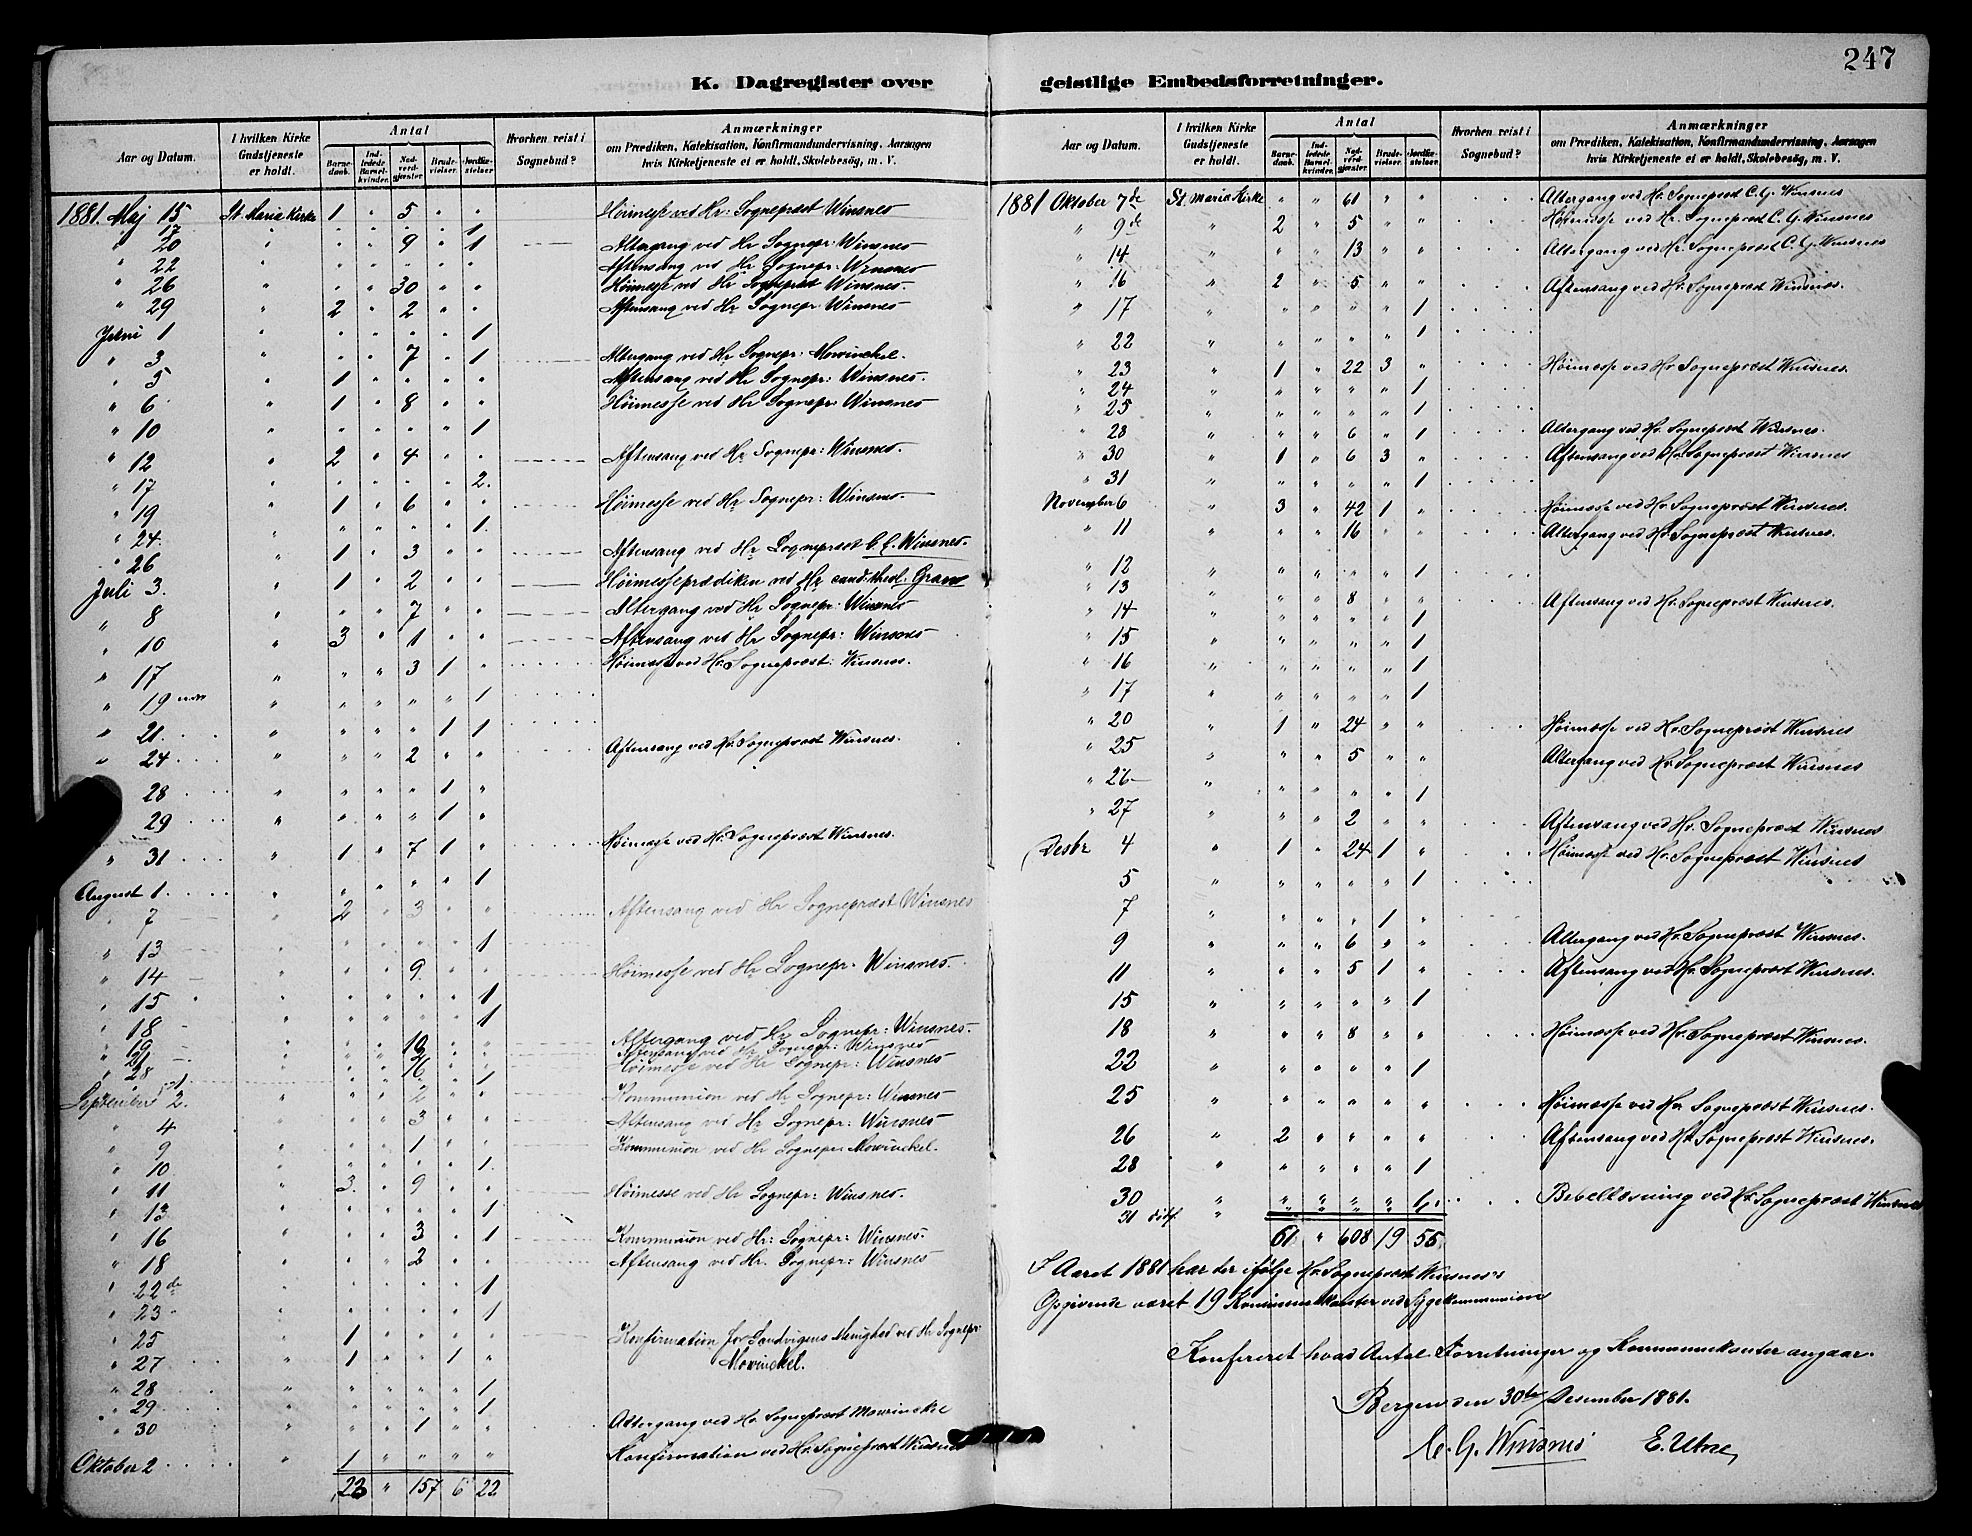 247
K. Dagregister over geistlige Embedsforretninger.
Aar og Datum. I hvilken Kirke Gudstjeneste er holdt. Antal Barnedaab. Indledede Barselkvinder. Nadverdgjæster. Brudevielser. Jordfæstelser. Hvorhen reist i Sognebud? Anmærkninger om Prædiken, Katekisation, Konfirmandundervisning, Aarsagen hvis Kirketjeneste ei er holdt, Skolebesög, m. V.
1881. Maj 15 St. Maria Kirke 1 " 5 " " Høimesse ved Hr: Sognepræst Winsnes
" 17 " " " " " 1
" 20 " " " 9 " 1 Altergang ved Hr Sognepr: Winsnes
" 22 " " " " " " Aftensang ved Hr Sognepr: Winsnes
" 26 " " " 30 " " Høimesse ved Hr Sognepræst Winsnes.
" 29 " 2 " 2 " " Aftensang ved Hr Sognepr: Winsnes
Juni 1 " " " " " 1
" 3 " " " 7 " 1 Altergang ved Hr Sognepr: Mowinckel.
" 5 " 1 " " " " Aftensang ved Hr Sognepr: Winsnes.
" 6 " 1 " 8 " " Høimesse ved Hr Sognepr: Winsnes
" 10 " " " " " 1
" 12 " 2 " 4 " " Aftensang ved Hr Sognepr: Winsnes.
" 17 " " " " " 2.
" 19 " 1 " 6 " " Høimesse ved Hr Sognepr: Winsnes.
" 24. " " " " " 1.
" 26 " 1 " 3 " " Aftensang ved Hr Sognepræst C. G. Winsnes.
Juli 3. " 1 " 2 " " Høimesseprædiken ved Hr cand. theol. Gran
" 8 " " " 7 " " Altergang ved Hr Sognepr: Winsnes
" 10 " 3 " 1 " " Aftensang ved Hr Sognepr: Winsnes
" 17 " " " 3 1 " Høimesse ved Hr. Sognepræst: Winsnes.
" 19 " " " " " 1
" 21. " " " " 1 1
" 24 " " " 2 " " Aftensang ved Hr. Sognepræst Winsnes.
" 28 " " " " 1 "
" 29 " " " " 1 "
" 31 " 1 " 7 1 " Høimesse ved Hr. Sognepræst Winsnes.
August 1. " " " " " 1
" 7 " 2 " 3 " " Aftensang ved Hr Sognepræst Winsnes
" 13 " " " " " 1
" 14 " " " 9 " " Høimesse ved Hr Sognepr: Winsnes.
" 15 " " " " " 1
" 18 " " " " " 1
" 19 " " " 10 " " Altergang ved Hr Sognepr: Winsnes.
" 21 Aftensang ved Hr Sognepr: Winsnes
" 28 " " " 16 " " Høimesse ved Hr Sognepr: Winsnes
September 1 1
2. " " " 2 " " Kommunion ved Hr Sognepr: Winsnes
" 4 " " " 3 " " Aftensang ved Hr Sognepr: Winsnes
" 9 " " " 1 " " Kommunion ved Hr Sognepr: Mowinckel.
" 10 " " " " " 1.
" 11 " 3. " 9 " " Høimesse ved Hr Sognepr: Winsnes.
" 13 " " " " " 1
" 16 " " " 3 " 1 Kommunion ved Hr: Sognepr: Winsnes.
" 18 " " " 2 " " Aftensang ved Hr. Sognepr: Winsnes
" 22de " " " " " 1
" 23 " " " " " 1
" 25 " 1 " " " " Konfirmation for Sandvigens Menighed ved Hr Sognepr:
Mowinckel.
" 27 " 1 " " 1 "
" 28 " " " " " 1
" 29 " " " " " 1
" 30 " " " 1 " " Altergang ved Hr Sognepræst Mowinckel
Oktober 2 1 " " " " Konfirmation ved Hr. Sognepræst Winsnes
23 " 157 6 22
K. Dagregister over geistlige Embedsforretninger.
Aar og Datum. I hvilken Kirke Gudstjeneste er holdt. Antal Barnedaab. Indledede Barselkvinder. Nadverdgjæster. Brudevielser. Jordfæstelser. Hvorhen reist i Sognebud? Anmærkninger om Prædiken, Katekisation, Konfirmandundervisning, Aarsagen hvis Kirketjeneste ei er holdt, Skolebesög, m. V.
1881 Oktober 7de St. Maria Kirke " " 61 " " Altergang ved Hr. Sognepræst C. G. Winsnes
" 9de " 2 " 5 " " Høimesse ved Hr. Sognepræst C. G. Winsnes
" 14 " " " 13 " " Altergang ved Hr. Sognepræst C. G. Winsnes
" 16 " 2 " 5 " " Aftensang ved Hr. Sognepræst Winsnes.
" 17 " " " " " 1
" 22 " " " " " 1
" 23 " 1 " 22 3 " Høimesse ved Hr Sognepræst Winsnes.
" 24 " " " " " 1
" 25 " " " " " 1
" 28 " " " 6 " 1 Altergang ved Hr. Sognepræst Winsnes.
" 30 " 1 " 6 3 " Aftensang ved Hr. Sognepræst Winsnes
" 31 " " " " " 1
November 6 " 3 " 42 1 " Høimesse ved Hr. Sognepræst Winsnes.
" 11 " " " 16 " " Altergang ved Hr. Sognepræst Winsnes.
" 12 " " " " " 1
" 13 " " " 8 " " Aftensang ved Hr. Sognepræst Winsnes.
" 14 " " " " " 1
" 15 " " " " " 1
" 16 " " " " " 1
" 17 " " " " " 1
" 20 " 1 " 24 " " Høimesse ved Hr. Sognepræst Winsnes
" 25 " " " 5 " " Altergang ved Hr Sognepræst Winsnes
" 26 " " " " " 1
" 27 " " " 2 " " Aftensang ved Hr. Sognepræst Winsnes
Desbr 4 " 1 " 24 1 " Høimesse ved Hr. Sognepræst Winsnes
5 " " " " " 1
7 " " " " 1 "
9 " " " 6 " " Altergang ved Hr. Sognepræst Winsnes.
11 " " " 5 1 " Aftensang ved Hr. Sognepræst Winsnes.
15 " " " " " 1
18 " " " 8 " " Høimesse ved Hr. Sognepræst Winsnes.
22 " " " " " 1
25 " " " " " " Høimesse ved Hr Sognepræst Winsnes.
26 " 2 " " " " Aftensang ved Hr. Sognepræst Winsnes.
28 " " " " " 1
30 " " " " " 1. Bibellæsning ved Hr. Sognepræst Winsnes
31
61 " 608 19 55
I Aaret 1881 har der ifølge Hr. Sognepræst Winsnes's
Opgivende været 19 Kommunikanter ved Sygekommunion
Konfereret hvad Antal Forretninger og Kommunikanter angaar.
Bergen den 30te Desember 1881.
C. G. Winsnes E. Utne